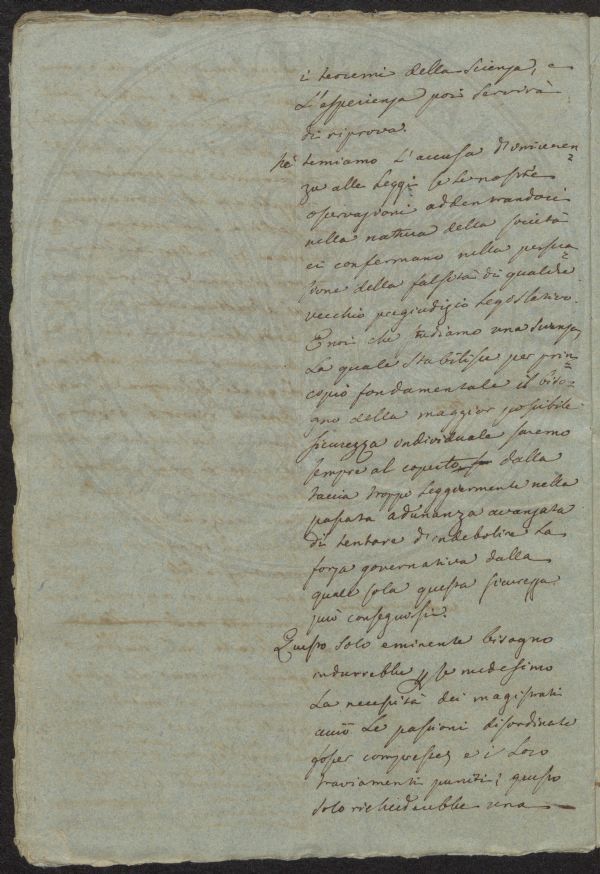 i teoremi della Scienza, e
L'assperienza poi servirà
di riprova.
Nè temiamo L'accusa d'
za alle Leggi se le nostre
osservazioni addentrandoci
nella natura della società
ci confermano nella persua=
sione della falsità di qualche
vecchio pregiudizio Legislativo.
E noi che studiamo una Scienza,
La quale stabilisce per prin=
cipio fondamentale il biso=
gno della maggior possibile
sicurezza individuale saremo
sempre al coperto dalla
taccia troppo Leggiermente nella
passata adunanza avanzata
di tentare d'indebolire La
forza governativa dalla
quale sola questa sicurezza
può conseguirsi.
Questo solo eminente bisogno
indurrebbe per se medesimo
La necessità dei magistrati
acciò Le passioni disordinate
fosser compresse, e i Loro
traviamenti puniti; questo
solo richiederebbe una